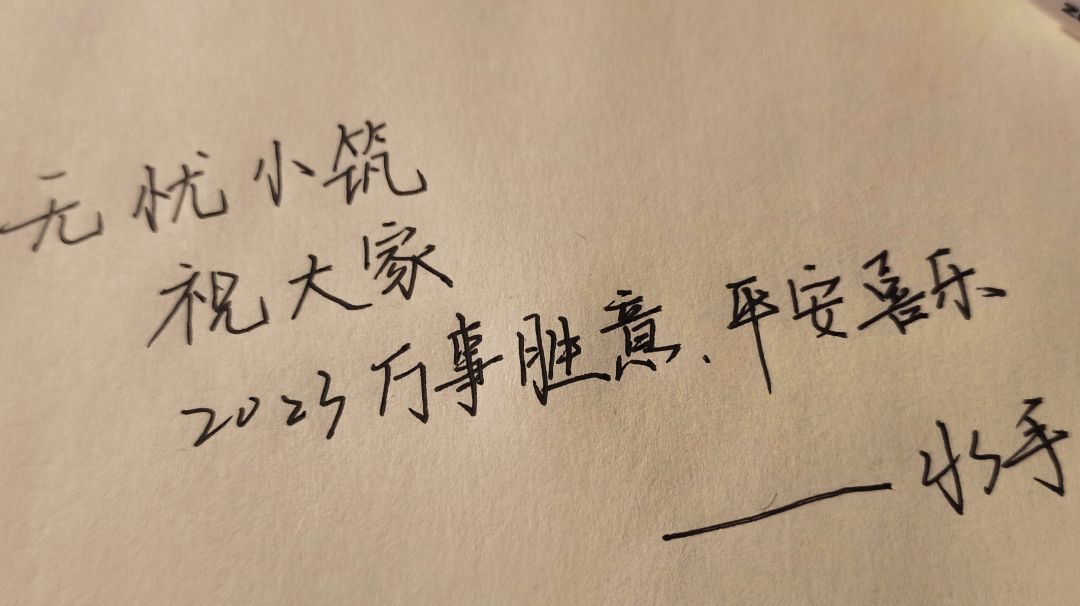 无忧小筑
祝大家
2023万事胜意、平安喜乐